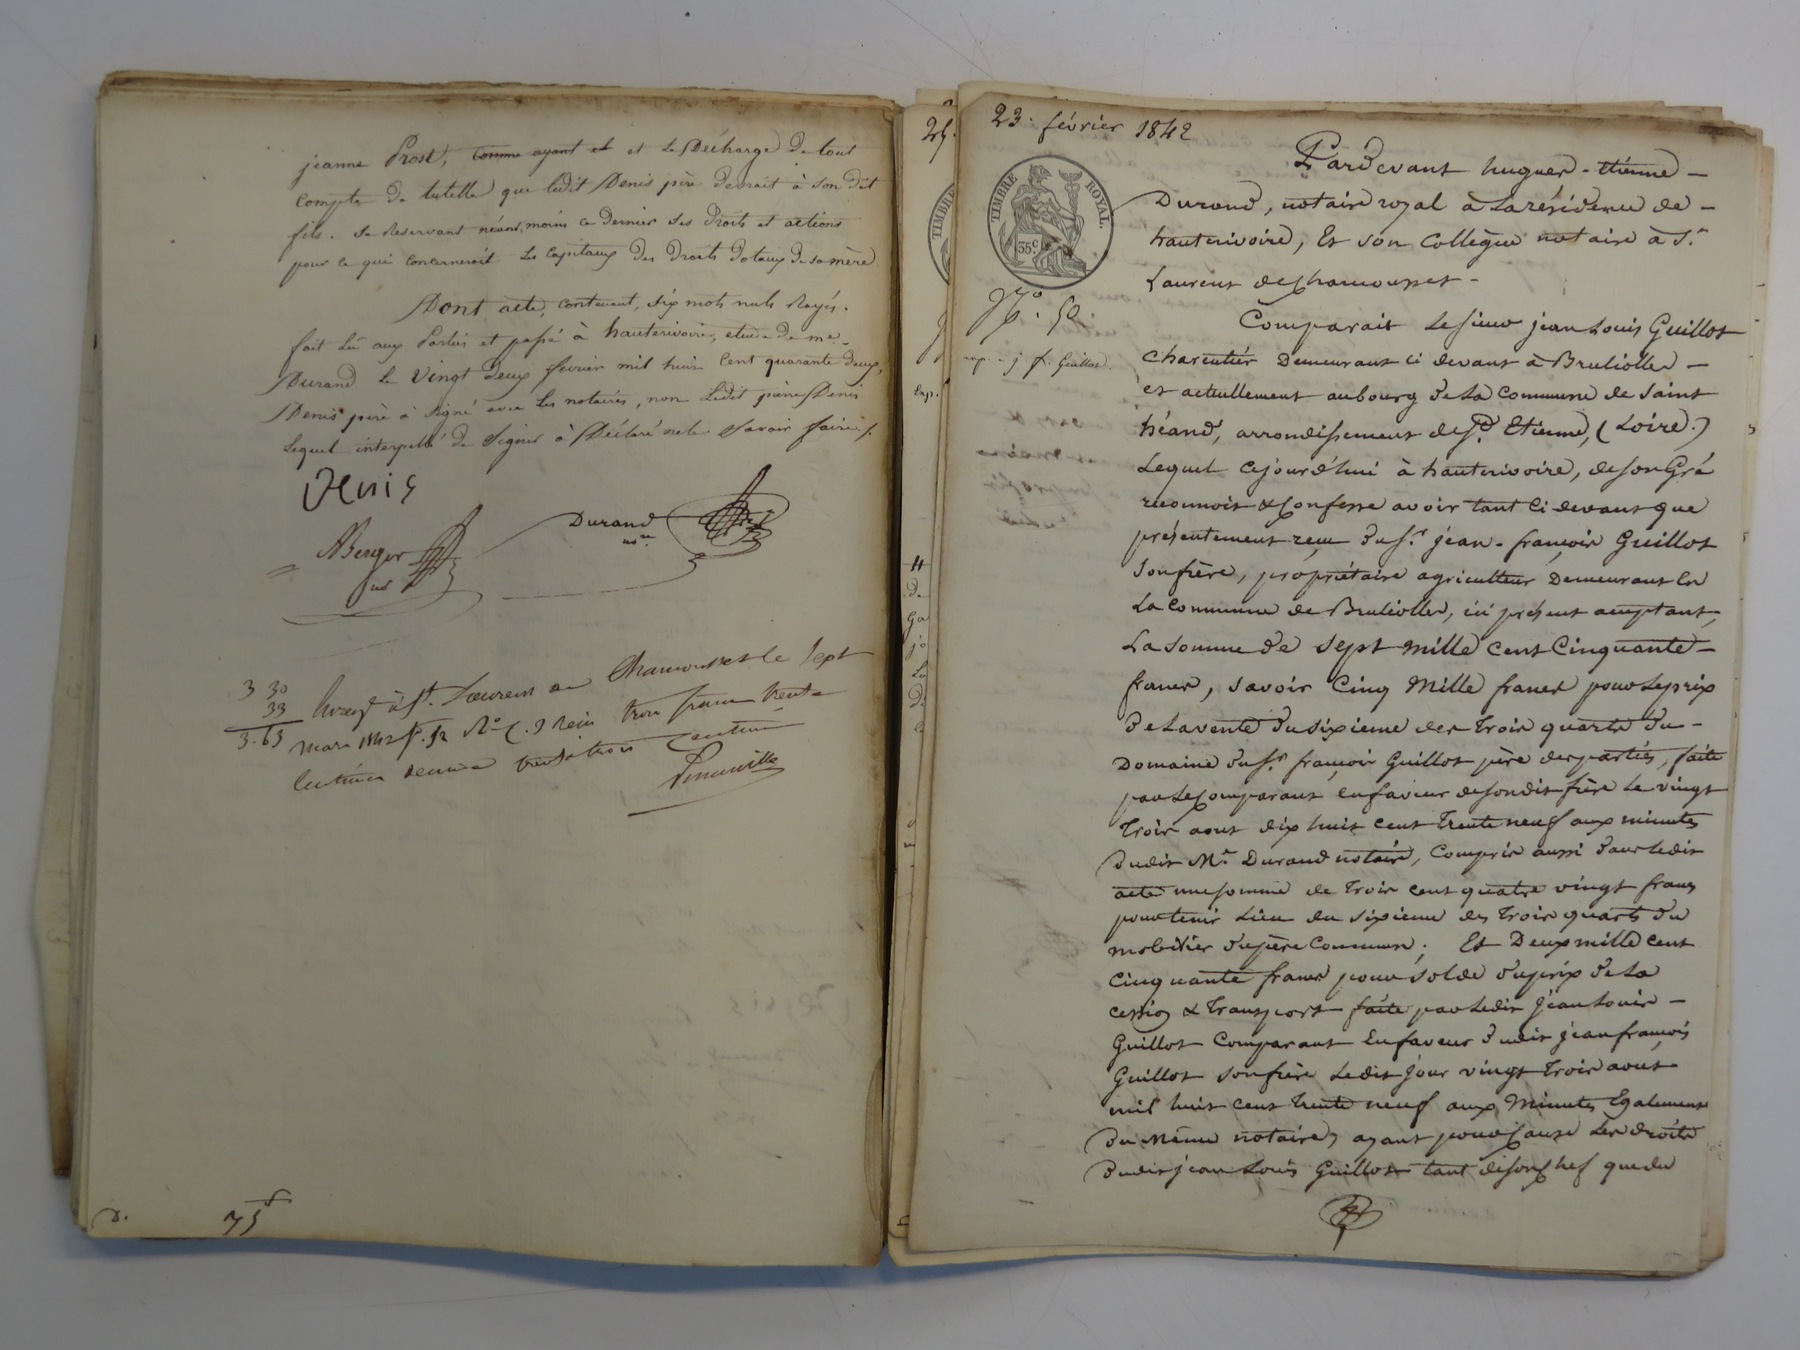 jeanne Prost, comme ayant et et le Décharge de tout
compte de tutelle que ledit Denis père devrait à son dit
fils. se reservant néanmoins ce dernier ses droits et actions
pour ce qui concerneroit les capitaux des droits dotaux de sa mère
Dont acte, contenant, six mots nuls rayés.
fait lû aux Parties et passé à hauterivoire, etude de me
Durand le vingt deux fevrier mil huit cent quarante deux,
Denis père à signé avec les notaires, non ledit pierre Denis
lequel interpellé de signer à Déclaré ne le savoir faire /.
Denis
Berger
Durand
nre
3 30
33
3.63
à St. Laurent de Chamousset le sept
mars 1842 reçu trois francs trente
centimes decime trente trois centimes
D.
75
23. février 1842
TIMBRE ROYAL
35c
Pardevant hugues-étienne-
Durand, notaire royal à la résidence de-
hauterivoire, Et son Collègue notaire à St
Laurent de Chamousset-
Comparait Le sieur jean Louis Guillot
charcutier Demeurant ci devant à Bruliolles-
et actuellement au bourg de La Commune de Saint
héand, arrondissement de St. Etienne, (Loire.)
Lequel cejourd'hui à hauterivoire, de son Gré
reconnoit & confesse avoir tant ci devant que
présentement reçu du Sr. jean-françois Guillot
son frère, propriétaire agriculteur Demeurant En
La Commune de Bruliolles, ici présent acceptant,
La somme de sept mille cent Cinquante-
francs, savoir Cinq Mille francs pour Le prix
de La vente du sixieme des trois quarts du-
Domaine du Sr. françois Guillot père des parties, faite
par Le Comparant en faveur de son dit frère Le vingt
trois aout dix huit cent trente neuf aux minutes
dudit Me. Durand notaire, Compris aussi dans ledit
acte une somme de trois cent quatre vingt francs
pour tenir Lieu du sixieme des trois quarts du
mobilier du père Commun; Et Deux mille cent
Cinquante francs pour solde du prix de La
cession & transport faite par Ledit jean Louis-
Guillot Comparant En faveur dudit jean françois
Guillot son frère Ledit jour vingt trois aout
mil huit cent trente neuf aux Minutes Egalement
Du Même notaire, ayant pour Cause Les droits
dudit jean Louis Guillot tant de son chef que du